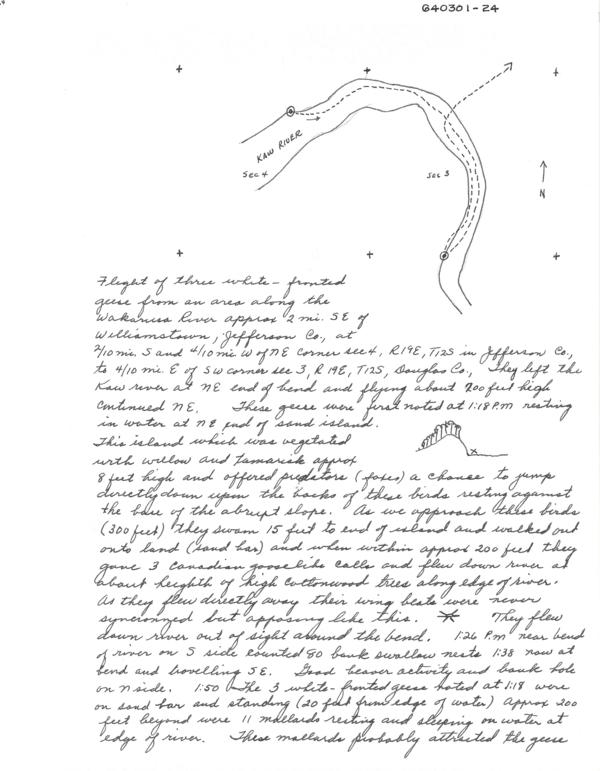 640301-24
KAW RIVER
SEC 4
SEC 3
N
Flight of three white-fronted
geese from an area along the
Wakarusa River approx 2 mi. SE of
Williamstown, Jefferson Co., at
2/10 mi. S and 4/10 mi W of NE corner sec 4, R19E, T12S in Jefferson Co.,
to 4/10 mi E of SW corner sec 3, R19E, T12S, Douglas Co., They left the
Kaw river at NE end of bend and flying about 200 feet high
continued NE. These geese were first noted at 1:18 P.M resting
in water at NE end of sand island.
This island which was vegetated
with willow and Tamarisk approx
8 feet high and offered predators (foxes) a chance to jump
directly down upon the backs of these birds resting against
the base of the abrupt slope. As we approach these birds
(300 feet) they swam 15 feet to end of island and walked out
onto land (sand bar) and when within approx 200 feet they
gave 3 Canadian goose like calls and flew down river at
about heighth of high cottonwood trees along edge of river.
As they flew directly away their wing beats were never
syncronned but apposing like this. They flew
down river out of sight around the bend. 1:26 P.m near bend
of river on S side counted 80 bank swallow nests 1:38 now at
bend and travelling SE. Good beaver activity and bank hole
on N side. 1:50 The 3 white-fronted geese noted at 1:18 were
on sand bar and standing (20 feet from edge of water) Approx 200
feet beyond were 11 mallards resting and sleeping on water at
edge of river. These mallards probably attracted the geese